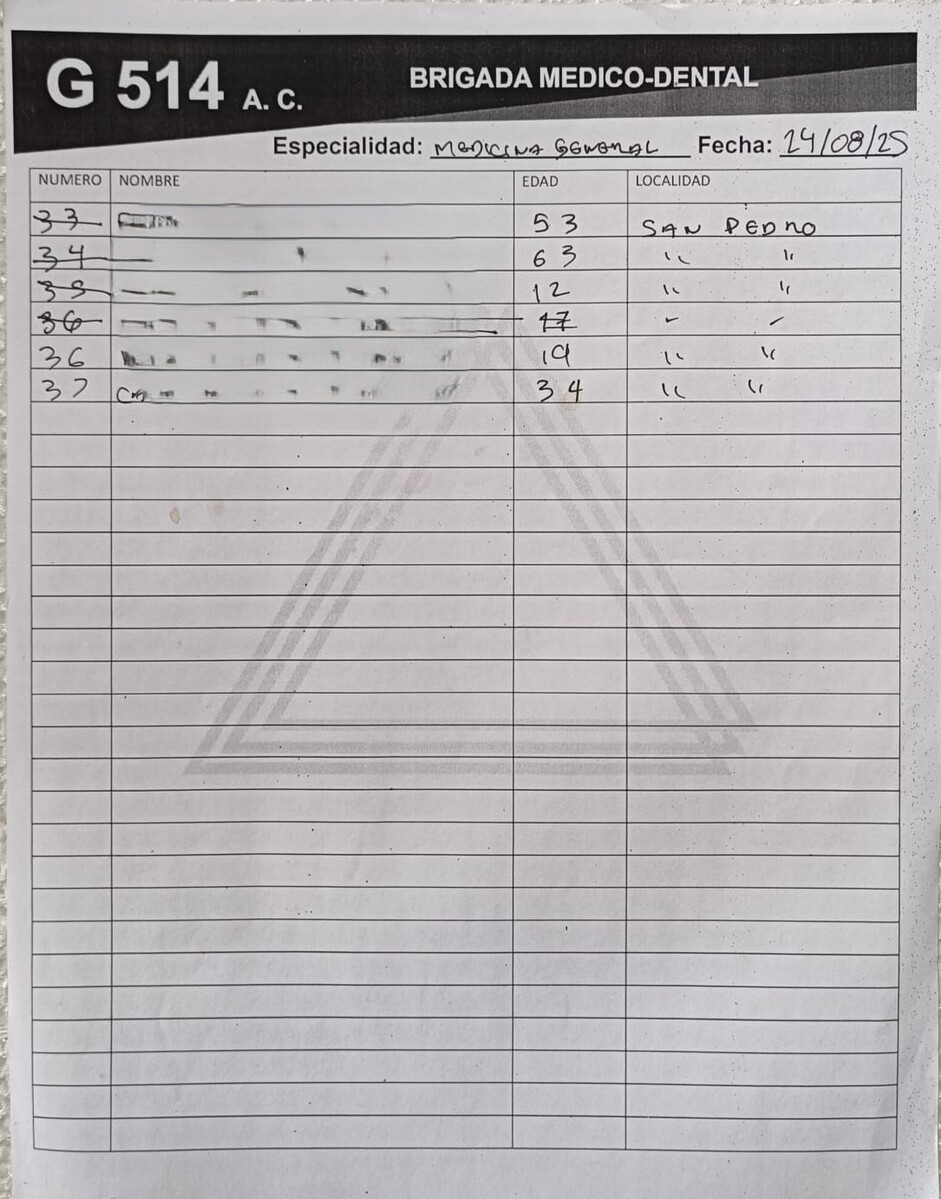 G 514 A. C.
BRIGADA MEDICO-DENTAL
Especialidad: MEDICINA GENERAL Fecha: 24/08/25
NUMERO NOMBRE EDAD LOCALIDAD
33 53 SAN PEDRO
34 63 " "
35 12 " "
36 17 - -
36 19 " "
37 34 " "